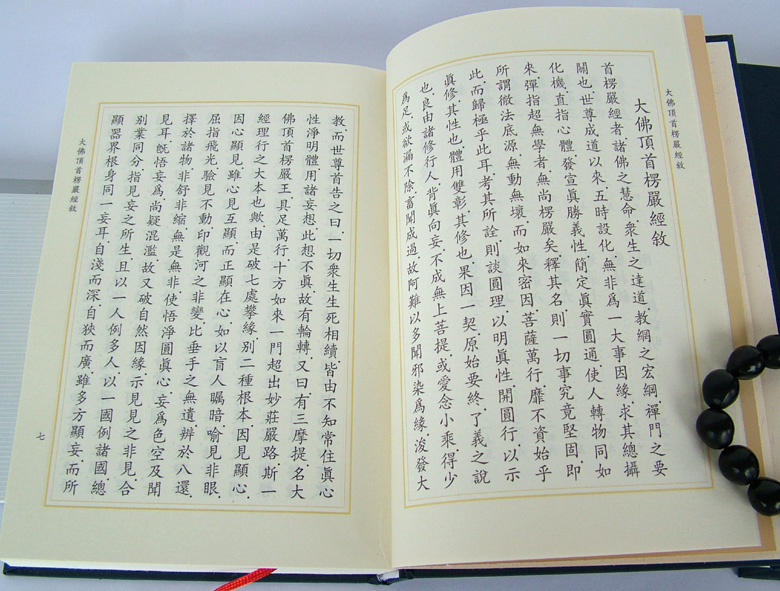 大佛頂首楞嚴經敘
大佛頂首楞嚴經敘
首楞嚴經者．諸佛之慧命．衆生之達道．教綱之宏綱．禪門之要
關也．世尊成道以來．五時設化．無非爲一大事因緣．求其總攝
化機．直指心體．發宣眞勝義性．簡定眞實圓通．使人轉物同如
來．彈指超無學者．無尚楞嚴矣．釋其名則一切事究竟堅固．即
所謂徹法底源．無動無壞．而如來密因．菩薩萬行．靡不資始乎
此．而歸極乎此耳．考其所詮．則談圓理．以明眞性．開圓行．以示
眞修．其性也．體用雙彰．其修也．果因一契．原始要終．了義之說
也．良由諸修行人．背眞向妄．不成無上菩提．或愛念小乘．得少
爲足．或欲漏不除．畜聞成過．故阿難以多聞邪染爲緣．浚發大
教．而世尊首告之曰．一切衆生．生死相續．皆由不知常住眞心
性淨明體．用諸妄想．此想不眞．故有輪轉．又曰．有三摩提．名大
佛頂首楞嚴王．具足萬行．十方如來．一門超出妙莊嚴路．斯一
經理行之大本也歟．由是破七處攀緣．別二種根本．因見顯心．
因心顯見．雖心見互顯．而正顯在心．如以盲人矚暗．喻見非眼．
屈指飛光．驗見不動．印觀河之非變．比垂手之無遺．辨於八還．
擇於諸物．非舒非縮．無是無非．使悟淨圓眞心．妄爲色空及聞
見耳．旣悟妄爲．尚疑混濫．故又破自然因緣．示見見之非見．合
別業同分．指見妄之所生．且以一人例多人．以一國例諸國．總
顯器界根身．同一妄耳．自淺而深．自狹而廣．雖多方顯妄．而所
大佛頂首楞嚴經敘
七